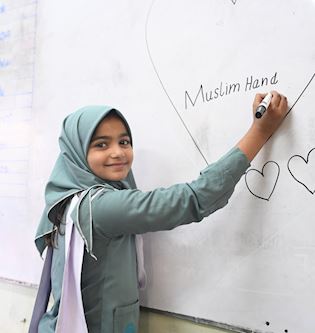 Muslim Hand